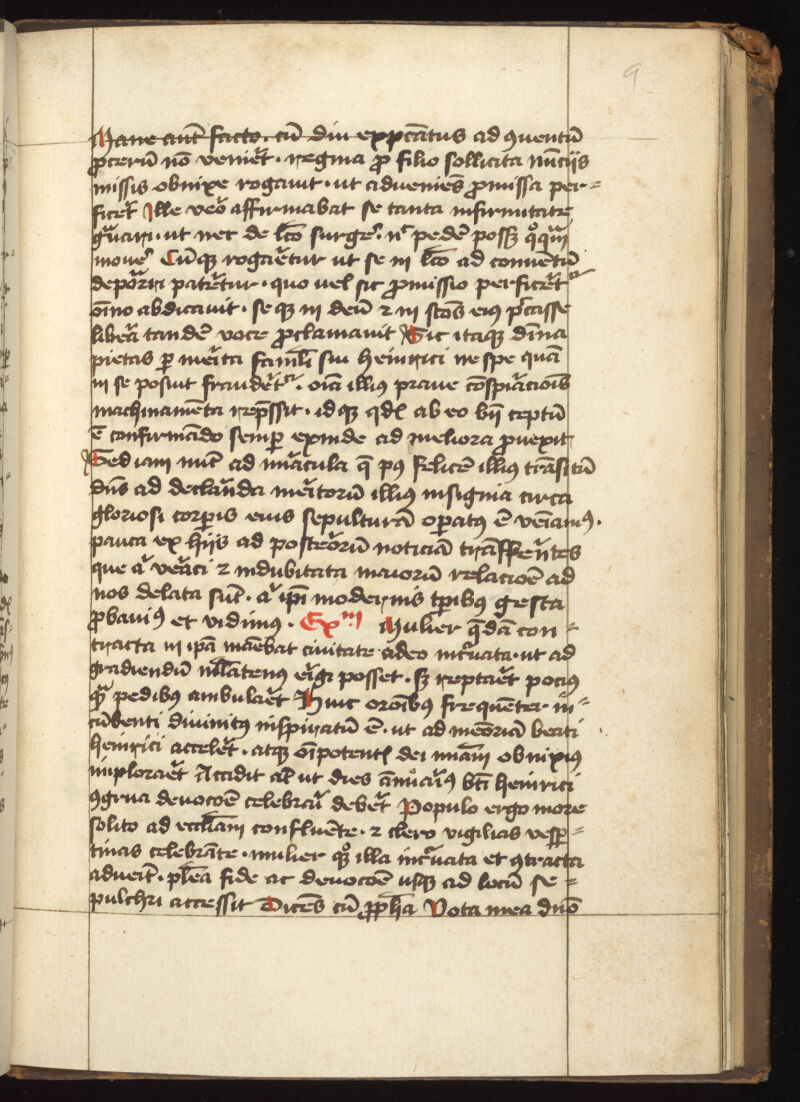 9
Mane aut̄ facto. cū diu exp̄ctatus ad ꝯuentū
ꝓcerū nō venir̄et. regina ꝓ filio sollicita nūciis
missis obnixe rogauit. ut adueniēs ꝓmissa per=
ficeret Ille vero affirmabat se tanta infirmitate
grauari. ut nec de lc̄o surgere. nec pedē posset
mouere Cūqꝫ rogaretur ut se in lc̄o ad conuentū
deportari pateretur. quo vel sic ꝓmissio perficeretur
oīno abdicauit. se qꝫ in deū ⁊ in sc̄os eius pc̄casse
libera tandē voce ꝓclamauit Sic itaqꝫ diuīa
pietas ꝑ merita famuli sui heinrici ne spe quā
in se posuit fraudaretur. oīa illius praue cōspiracionis
machinamēta rep̄ssit. idqꝫ qd̄ ab eo bn̄ ceptū
ē confirmādo semꝑ exinde ad meliora ꝓuexit
Sed iam nūc ad miracula q̄ pꝰ felicē illius trāsitū
dn̄s ad declaranda meritorū illius insignia circa
gloriosi corꝑis eius sepulturā oꝑatus ē veniamꝰ.
pauca ex hiis ad posteriorū noticiā trāsferentes
que a veraci ⁊ indubitata maiorū relacioē ad
nos delata sūt. aut ip̄i modernis tꝑibus gesta
ꝓbauimꝰ et vidimus. Exm̄ Mulier q̄dā con=
tracta in ip̄a manebat ciuitate adeo incuruata. ut ad
gradiendū nullatenus erigi posset. sꝫ reptaret pocius
quā pedibus ambularet Huic orōibus frequēter in=
cūbenti diuinitus inspiratū ē. ut ad memoriā beati
heinrici acceleret. atqꝫ oīpotentis dei miam̄ obnixius
imploraret Accidit aut̄ ut dies anniuersariꝰ bt̄i heinrici
ꝯgrua deuocōe celebrari deberet Populo ergo more
solito ad eccliam̄ confluente. ⁊ clero vigilias vesꝑ=
tinas celebrāte. mulier quoqꝫ illa incuruata et ꝯtracta
aduenit. plena fide ac deuocōe usqꝫ ad locū se=
pulchri accessit Dicēs cū ꝓph̄a Vota mea dn̄o